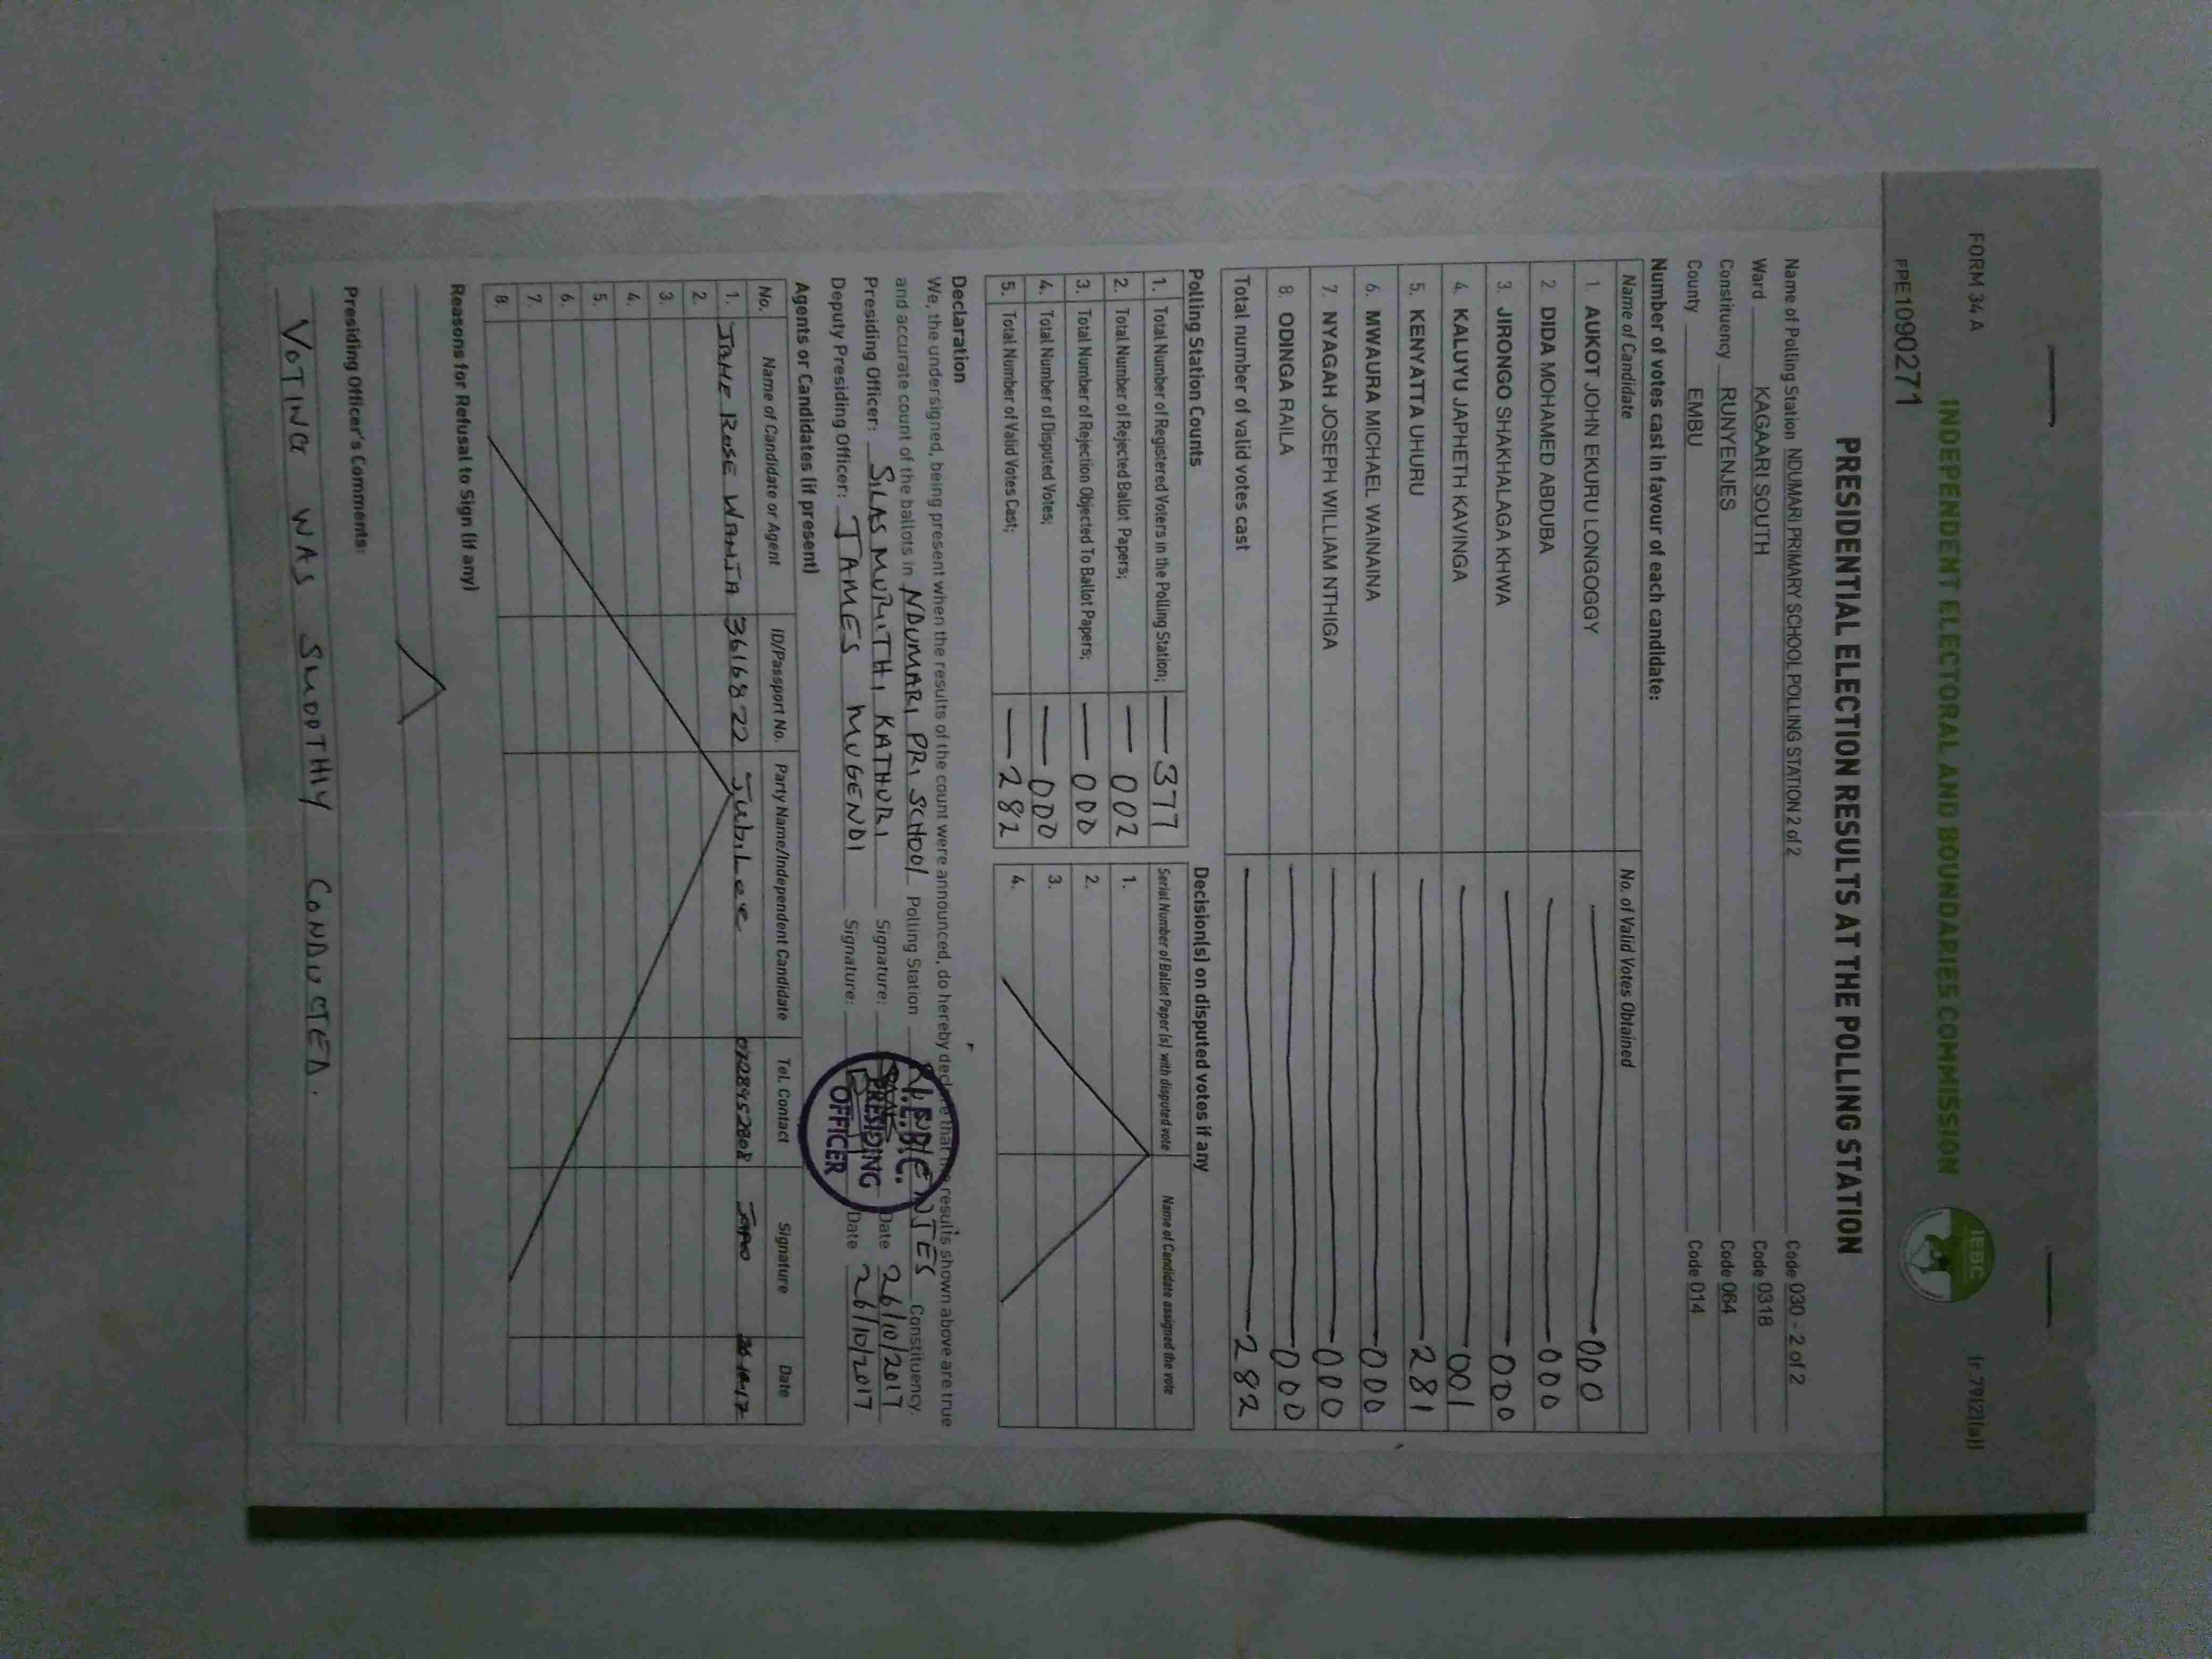 FORM 34 A
(r.79(2)(a))
INDEPENDENT ELECTORAL AND BOUNDARIES COMMISSION
IEBC
FPE1090271
PRESIDENTIAL ELECTION RESULTS AT THE POLLING STATION
Name of Polling Station NDUMARI PRIMARY SCHOOL POLLING STATION 2 of 2 Code 030 - 2 of 2
Ward KAGAARI SOUTH Code 0318
Constituency RUNYENJES Code 064
County EMBU Code 014
Number of votes cast in favour of each candidate:
Name of Candidate No. of Valid Votes Obtained
1. AUKOT JOHN EKURU LONGOGGY 000
2. DIDA MOHAMED ABDUBA 000
3. JIRONGO SHAKHALAGA KHWA 000
4. KALUYU JAPHETH KAVINGA 001
5. KENYATTA UHURU 281
6. MWAURA MICHAEL WAINAINA 000
7. NYAGAH JOSEPH WILLIAM NTHIGA 000
8. ODINGA RAILA 000
Total number of valid votes cast 282
Polling Station Counts
1. Total Number of Registered Voters in the Polling Station; 377
2. Total Number of Rejected Ballot Papers; 002
3. Total Number of Rejection Objected To Ballot Papers; 000
4. Total Number of Disputed Votes; 000
5. Total Number of Valid Votes Cast; 282
Decision(s) on disputed votes if any
Serial Number of Ballot Paper(s) with disputed vote Name of Candidate assigned the vote
1.
2.
3.
4.
Declaration
We, the undersigned, being present when the results of the count were announced, do hereby declare that the results shown above are true
and accurate count of the ballots in NDUMARI PRI SCHOOL Polling Station Constituency.
Presiding Officer: SILAS MURIITHI KATHURI Signature: Date 26/10/2017
Deputy Presiding Officer: JAMES MUGENDI Signature: Date 26/10/2017
I.E.B.C.
PRESIDING
OFFICER
Agents or Candidates (if present)
No. Name of Candidate or Agent ID/Passport No. Party Name/Independent Candidate Tel. Contact Signature Date
1. JANE ROSE WANJA 3616822 JubiLee 0728952808
2.
3.
4.
5.
6.
7.
8.
Reasons for Refusal to Sign (if any)
Presiding Officer's Comments:
VOTING WAS SMOOTHLY CONDUCTED.